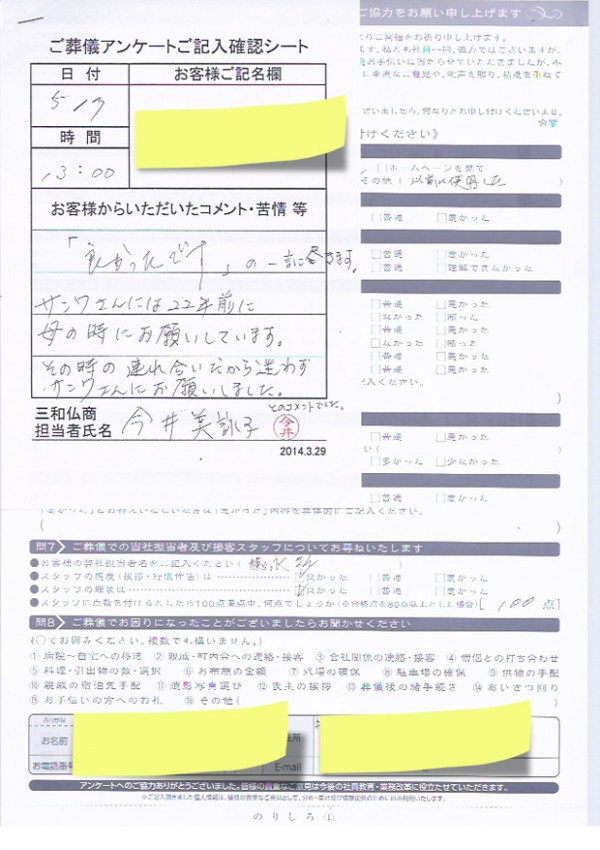 ご協力をお願い申し上げます
ご葬儀アンケートご記入確認シート
日付
お客様ご記名欄
5/7
時間
13:00
お客様からいただいたコメント・苦情 等
「良かったです」の一言に尽きます。
サンワさんには22年前に
母の時にお願いしています。
その時の連れ合いだから迷わず
サンワさんにお願いしました。
とのコメントでした。
三和仏商
担当者氏名
今井
今井
2014.3.29
合掌
付けください》
□ホームページを見て
その他(以前に使用した
□普通 □悪かった
□普通 □悪かった
□普通 □理解できなかった
□普通 □悪かった
□なかった □断った
□普通 □悪かった
□なかった □断った
□普通 □悪かった
□普通 □悪かった
□普通 □悪かった
□多かった □少なかった
□普通 □悪かった
問7 ご葬儀での当社担当者及び接客スタッフについてお尋ねいたします
●お客様の弊社担当者名をご記入ください(
●スタッフの態度(挨拶・行儀作法)は □良かった □普通 □悪かった
●スタッフの服装は □良かった □普通 □悪かった
●スタッフに点数を付けるとしたら100点満点中、何点でしょうか(※合格点を80点以上とした場合)[100点]
問8 ご葬儀でお困りになったことがございましたらお聞かせください
(○でお囲みください。複数でも構いません。)
①病院~自宅への移送 ②親戚・町内会への連絡・接客 ③会社関係の連絡・接客 ④僧侶との打ち合わせ
⑤料理・引出物の数・選択 ⑥お布施の金額 ⑦式場の確保 ⑧駐車場の確保 ⑨供物の手配
⑩親戚の宿泊先手配 ⑪遺影写真選び ⑫喪主の挨拶 ⑬葬儀後の諸手続き ⑭あいさつ回り
⑮お手伝いの方へのお礼 ⑯その他( )
ふりがな
お名前
お電話番号
E-mail
アンケートへのご協力ありがとうございました。皆様の貴重なご意見は今後の社員教育・業務改革に役立たせていただきます。
のりしろ①